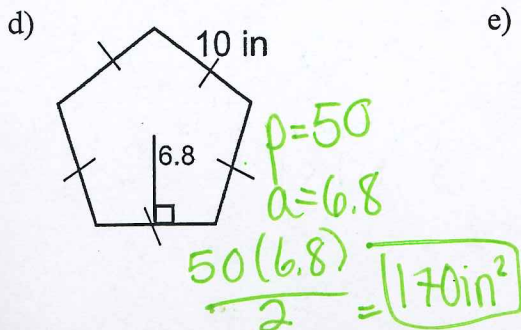 d)
e)
10 in
6.8
p=50
a=6.8
50(6.8)
2
= 170in²